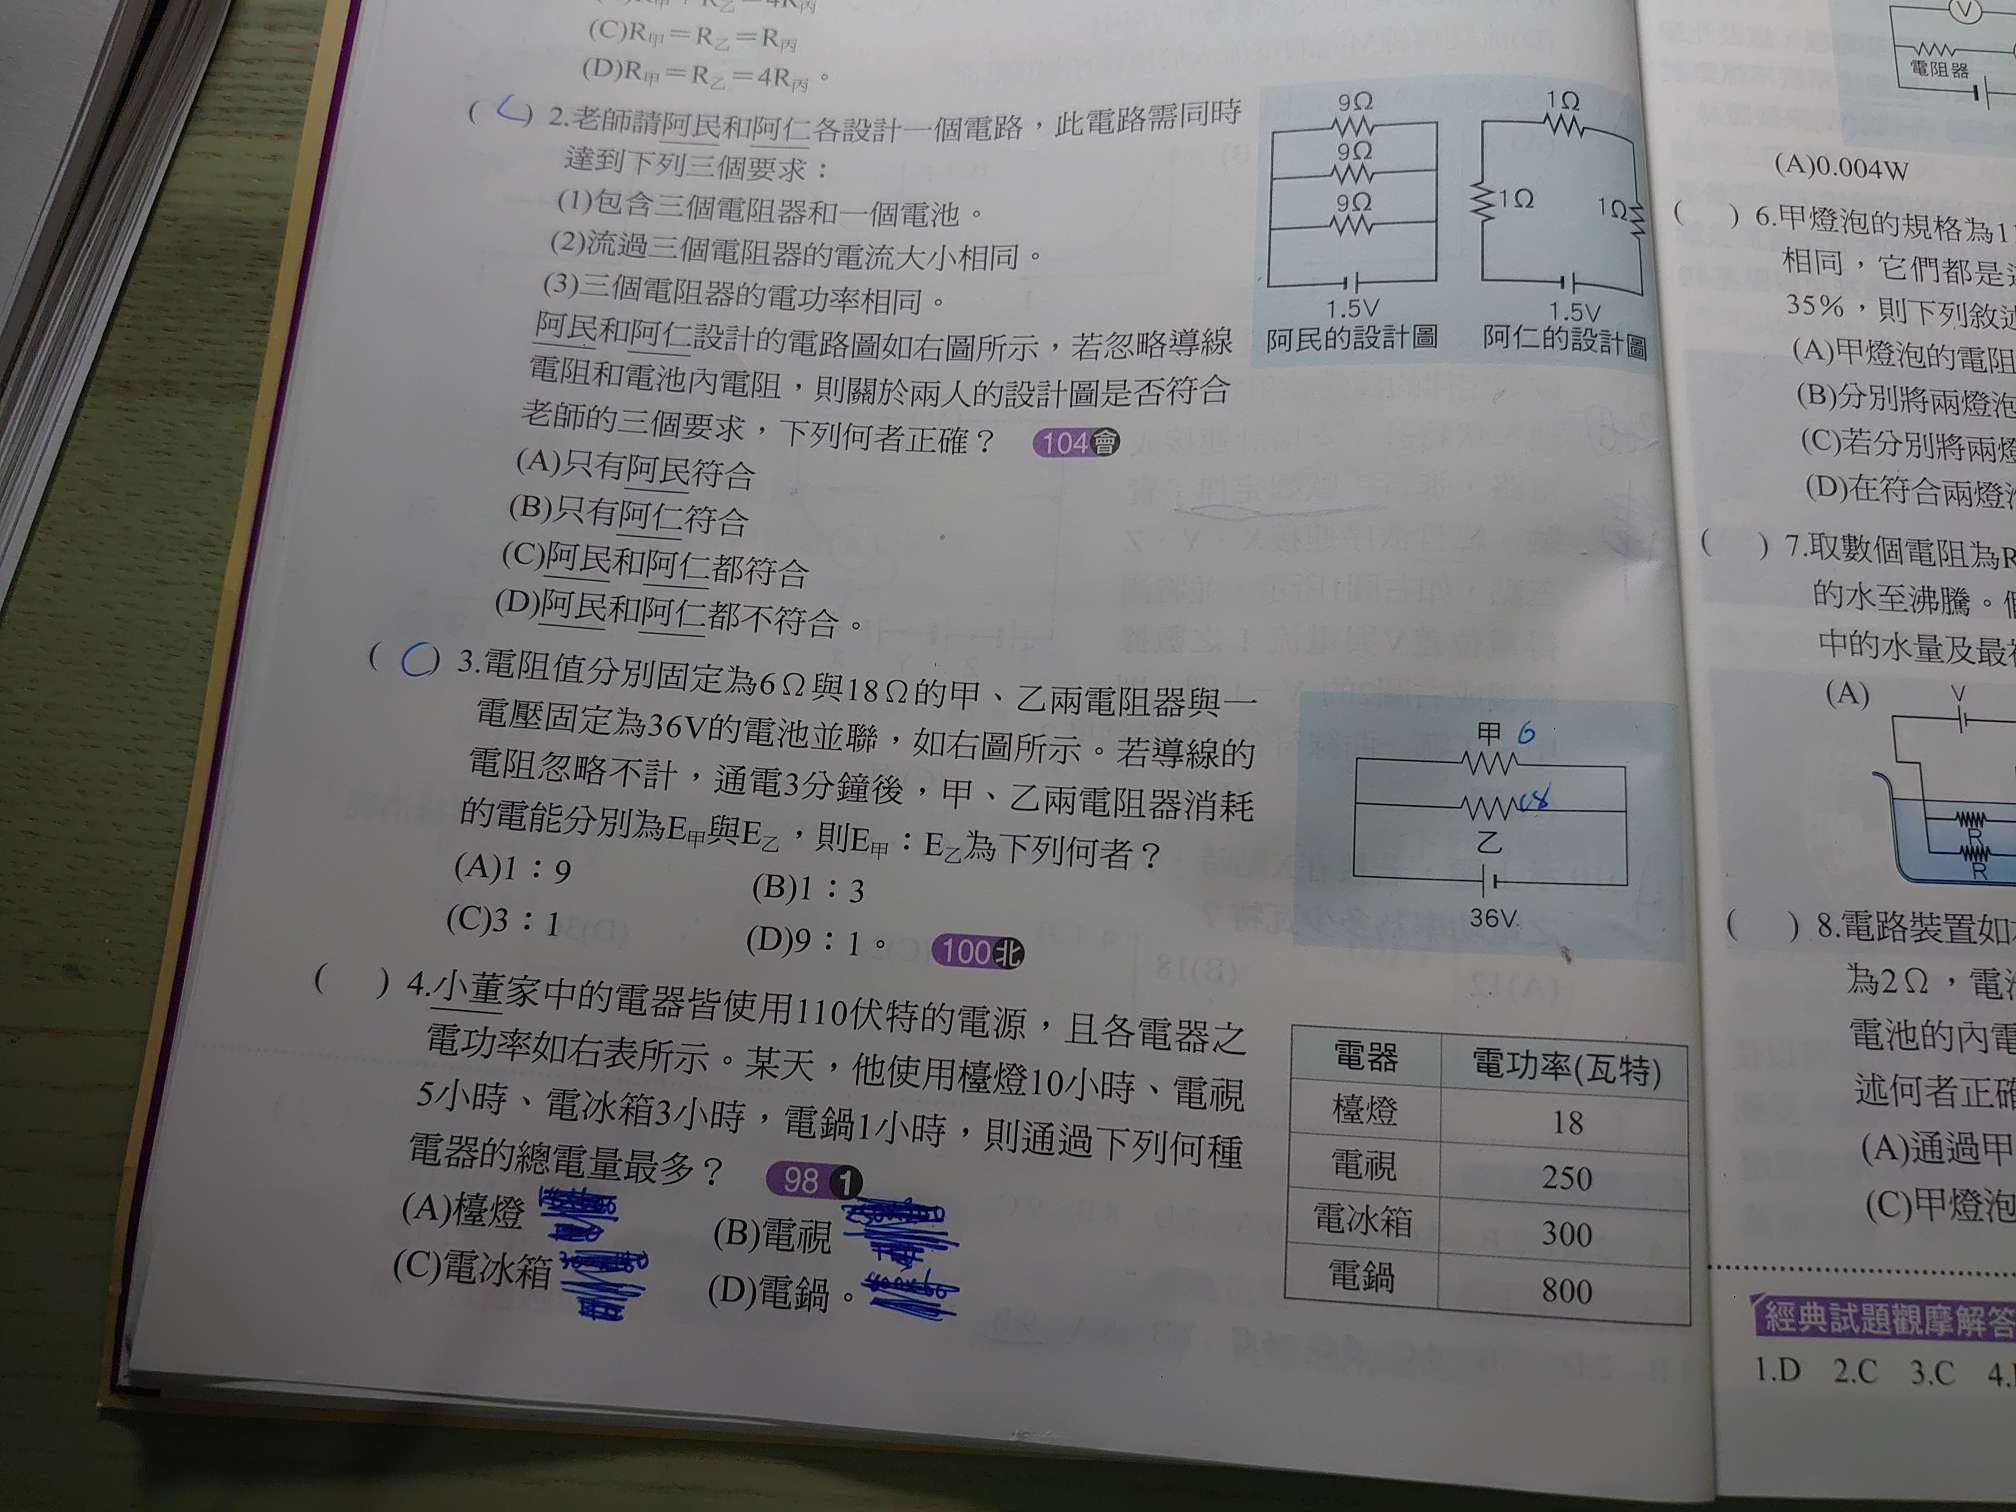 (C)R甲=R乙=R丙
(D)R甲=R乙=4R丙。
( C ) 2.老師請阿民和阿仁各設計一個電路，此電路需同時
達到下列三個要求：
(1)包含三個電阻器和一個電池。
(2)流過三個電阻器的電流大小相同。
(3)三個電阻器的電功率相同。
阿民和阿仁設計的電路圖如右圖所示，若忽略導線
電阻和電池內電阻，則關於兩人的設計圖是否符合
老師的三個要求，下列何者正確？ 104會
(A)只有阿民符合
(B)只有阿仁符合
(C)阿民和阿仁都符合
(D)阿民和阿仁都不符合。
9Ω
9Ω
9Ω
1.5V
阿民的設計圖
1Ω
1Ω
1Ω
1.5V
阿仁的設計圖
( C ) 3.電阻值分別固定為6Ω與18Ω的甲、乙兩電阻器與一
電壓固定為36V的電池並聯，如右圖所示。若導線的
電阻忽略不計，通電3分鐘後，甲、乙兩電阻器消耗
的電能分別為E甲與E乙，則E甲：E乙為下列何者？
(A)1：9 (B)1：3
(C)3：1 (D)9：1。 100北
甲 6
18
乙
36V
( ) 4.小董家中的電器皆使用110伏特的電源，且各電器之
電功率如右表所示。某天，他使用檯燈10小時、電視
5小時、電冰箱3小時，電鍋1小時，則通過下列何種
電器的總電量最多？ 98 1
(A)檯燈 (B)電視
(C)電冰箱 (D)電鍋。
電器 電功率(瓦特)
檯燈 18
電視 250
電冰箱 300
電鍋 800
V
電阻器
(A)0.004W
( ) 6.甲燈泡的規格為1
相同，它們都是
35%，則下列敘述
(A)甲燈泡的電阻
(B)分別將兩燈泡
(C)若分別將兩燈
(D)在符合兩燈泡
( ) 7.取數個電阻為R
的水至沸騰。
中的水量及最
(A)
V
R
R
( ) 8.電路裝置如
為2Ω，電池
電池的內電
述何者正確
(A)通過甲
(C)甲燈泡
經典試題觀摩解答
1.D 2.C 3.C 4.